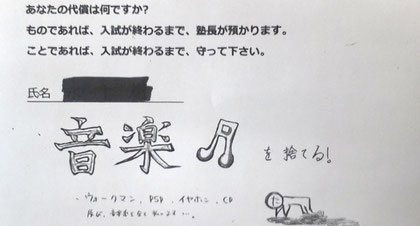 あなたの代償は何ですか?
ものであれば、入試が終わるまで、塾長が預かります。
ことであれば、入試が終わるまで、守って下さい。
氏名
音楽 を捨てる!
・ウォークマン、PSP、イヤホン、CD